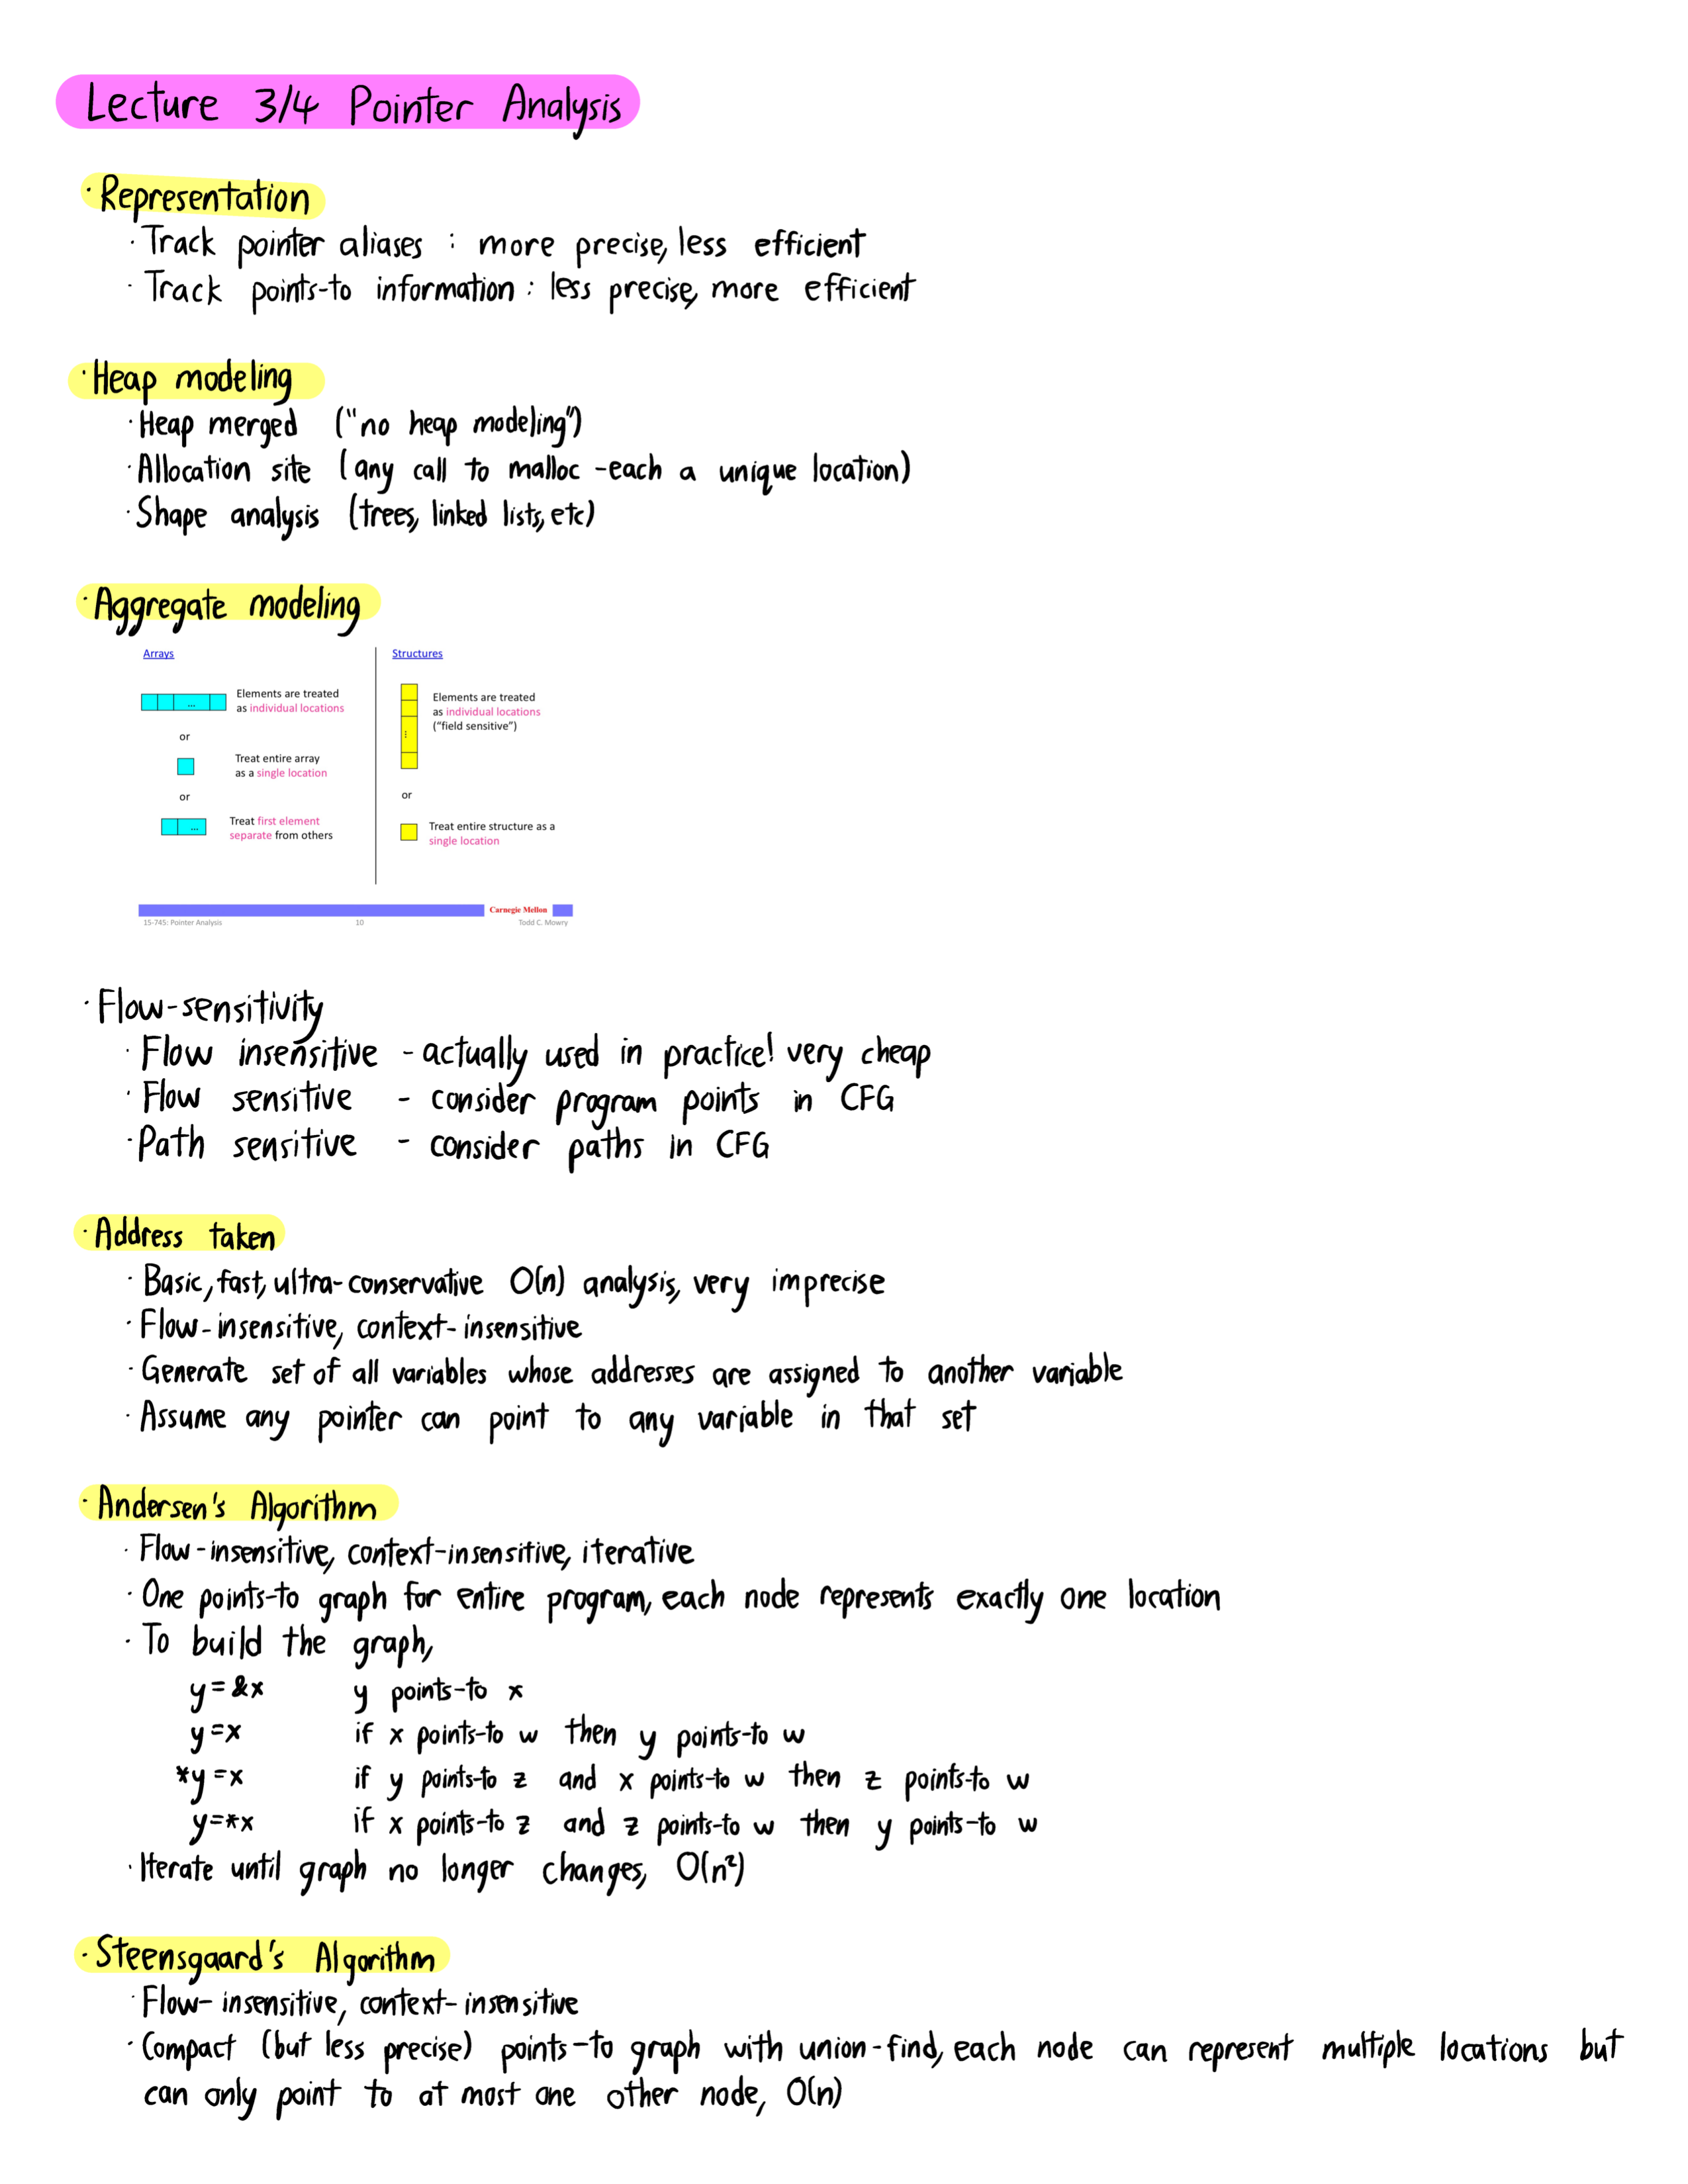 Lecture 3/4 Pointer Analysis
· Representation
· Track pointer aliases : more precise, less efficient
· Track points-to information : less precise, more efficient
· Heap modeling
· Heap merged ("no heap modeling")
· Allocation site (any call to malloc - each a unique location)
· Shape analysis (trees, linked lists, etc)
· Aggregate modeling
Arrays
...
Elements are treated
as individual locations
or
Treat entire array
as a single location
or
...
Treat first element
separate from others
Structures
...
Elements are treated
as individual locations
("field sensitive")
or
Treat entire structure as a
single location
Carnegie Mellon
15-745: Pointer Analysis 10 Todd C. Mowry
· Flow-sensitivity
· Flow insensitive - actually used in practice! very cheap
· Flow sensitive - consider program points in CFG
· Path sensitive - consider paths in CFG
· Address taken
· Basic, fast, ultra-conservative O(n) analysis, very imprecise
· Flow-insensitive, context-insensitive
· Generate set of all variables whose addresses are assigned to another variable
· Assume any pointer can point to any variable in that set
· Andersen's Algorithm
· Flow-insensitive, context-insensitive, iterative
· One points-to graph for entire program, each node represents exactly one location
· To build the graph,
y=&x y points-to x
y=x if x points-to w then y points-to w
*y=x if y points-to z and x points-to w then z points-to w
y=*x if x points-to z and z points-to w then y points-to w
· Iterate until graph no longer changes, O(n²)
· Steensgaard's Algorithm
· Flow-insensitive, context-insensitive
· Compact (but less precise) points-to graph with union-find, each node can represent multiple locations but
can only point to at most one other node, O(n)